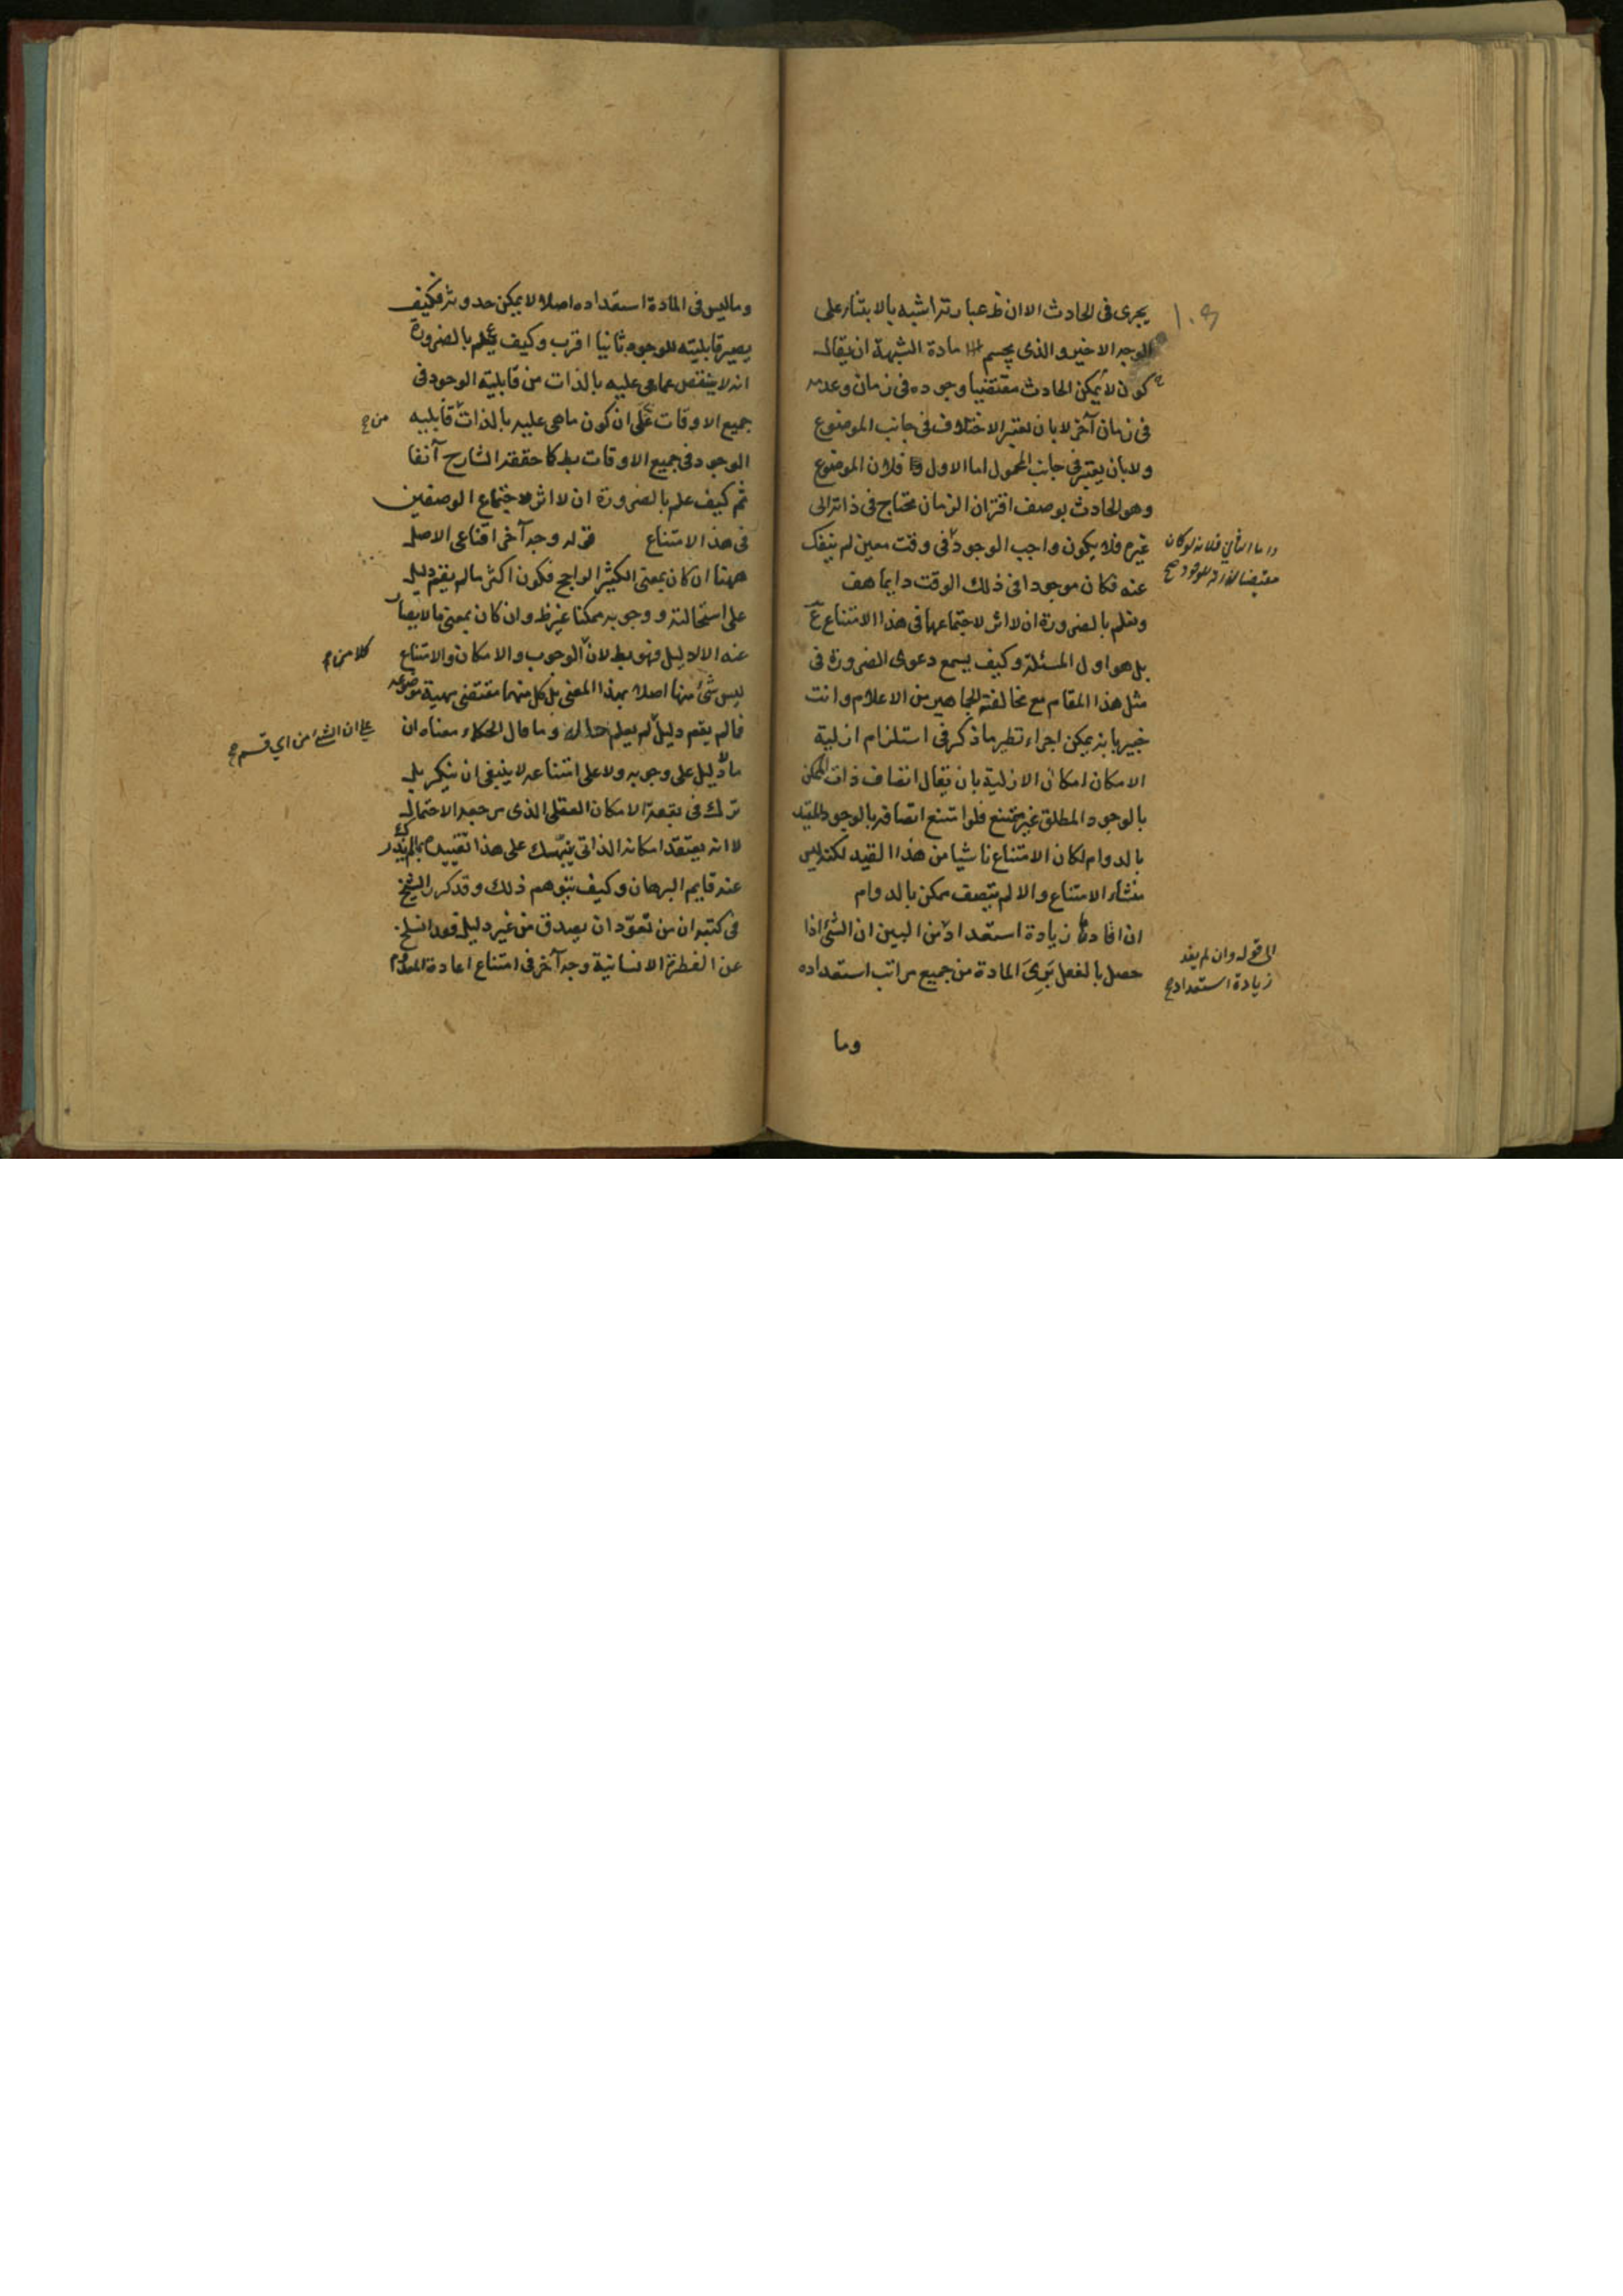 يجرى فى الحادث الا ان ظ عبارته اشبه بالابتناء على
الوجه الاخير والذى يحسم مادة الشبهة ان يقال
كون لا يمكن الحادث مقتضيا وجوده فى زمان وعدمه
فى زمان آخر لا بان يعتبر الاختلاف فى جانب الموضوع
ولا بان يعتبر فى جانب المحمول اما الاول فلان الموضوع
وهو الحادث بوصف اقتران الزمان محتاج فى ذاته الى
غيره فلا يكون واجب الوجود فى وقت معين لم ينفك
واما الثانى فلانه لوكان
مقتضيا لذاته للوجود صح
عنه فكان موجودا فى ذلك الوقت دايما هف
ونعلم بالضرورة ان لا اثر لاجتماعها فى هذا الامتناع ع
بل هو اول المسئلة وكيف يسمع دعوى الضرورة فى
مثل هذا المقام مع مخالفة الجماهير من الاعلام وانت
خبير بانه يمكن اجراء نظير ما ذكر فى استلزام ازلية
الامكان امكان الازلية بان يقال اتصاف ذات الممكن
بالوجود المطلق غير ممتنع فلو امتنع اتصافه بالوجود المقيد
بالدوام لكان الامتناع ناشيا من هذا القيد لكنه ليس
منشاء الامتناع والا لم يتصف ممكن بالدوام
ان افادتها زيادة استعداد من البين ان الشئ اذا
الى قوله وان لم يفد
زيادة استعداد
حصل بالفعل برى المادة من جميع مراتب استعداده
وما
وما ليس فى المادة استعداده اصلا لا يمكن حدوثه فكيف
يصير قابليته للوجود ثانيا اقرب وكيف يعلم بالضرورة
انه لا ينقص عما هى عليه بالذات من قابلية الوجود فى
جميع الاوقات على ان كون ما هى عليه بالذات قابلية
من
الوجود فى جميع الاوقات بط كما حققه الشارح آنفا
ثم كيف علم بالضرورة ان لا اثر لاجتماع الوصفين
فى هذا الامتناع قوله وجه آخر اقناعى الاصل
ههنا ان كان بمعنى الكثير الراجح فكون اكثر ما لم يقم دليل
على استحالته ووجوبه ممكنا غير ظ وان كان بمعنى ما لا يصار
عنه الا لدليل فهو بط لان الوجوب والامكان والامتناع
كلا من
ليس شئ منها اصلا بهذا المعنى بل كل منها مقتضى مهية موضوعه
فما لم يقم دليل لم يعلم حاله وما قال الحكماء معناه ان
على ان الشئ من اى قسم
ما لا دليل على وجوبه ولا على امتناعه لا ينبغى ان ينكر بل
ترك فى بقعة الامكان العقلى الذى مرجعه الاحتمال
لا انه يعتقد امكانه الذاتى ينبهك على هذا تقييده بما لم يذدك
عنه قايم البرهان وكيف يتوهم ذلك وقد كرر الشيخ
فى كتبه ان من تعود ان يصدق من غير دليل فقد انسلخ
عن الفطرة الانسانية وجه آخر فى امتناع اعادة المعدوم